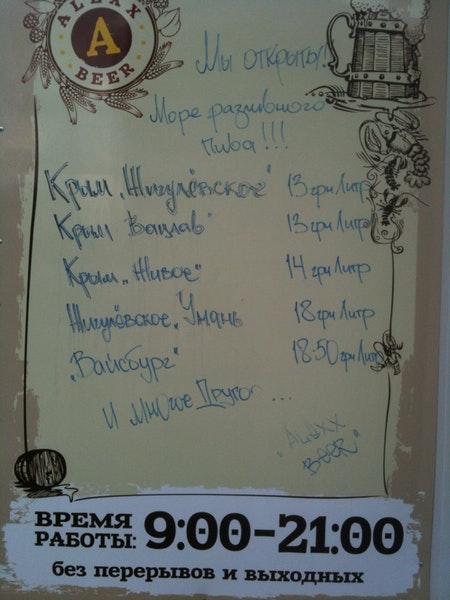 ALEAX
A
BEER
Мы открыты!
Море разливного
пива!!!
Крым „Жигулёвское" 13 грн литр
Крым Вацлав" 13 грн литр
Крым „Живое" 14 грн литр
Жигулёвское „Умань 18 грн литр
„Вайсбург" 18:50 грн литр
И многое Другое ...
BEER"
ВРЕМЯ
РАБОТЫ: 9:00-21:00
без перерывов и выходных